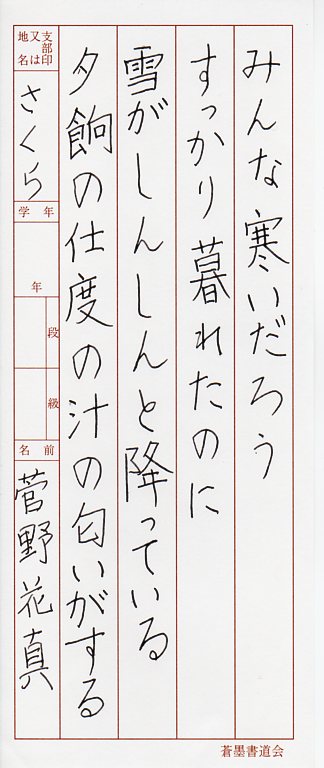 みんな寒いだろう
すっかり暮れたのに
雪がしんしんと降っている
夕餉の仕度の汁の匂いがする
支部印又は地名
さくら
学年
年
段
級
名前
菅野花真
蒼墨書道会